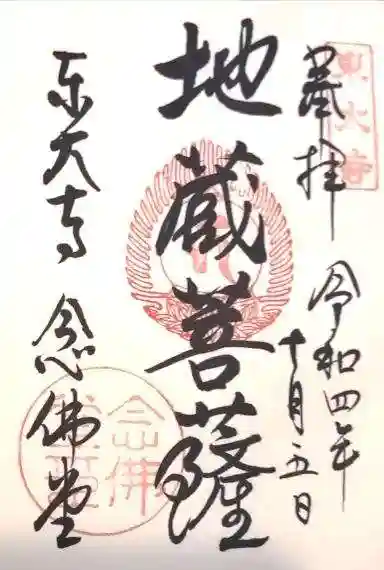 奉拝
東大寺
令和四年
十月五日
地蔵菩薩
東大寺 念佛堂
念佛